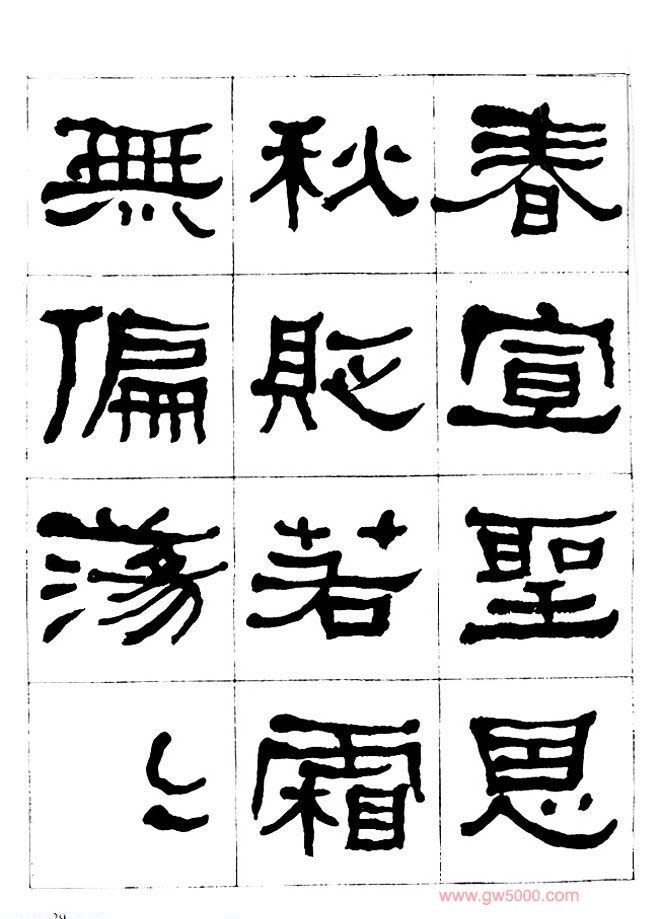 春宣聖恩
秋貶若霜
無偏蕩〻
www.gw5000.com